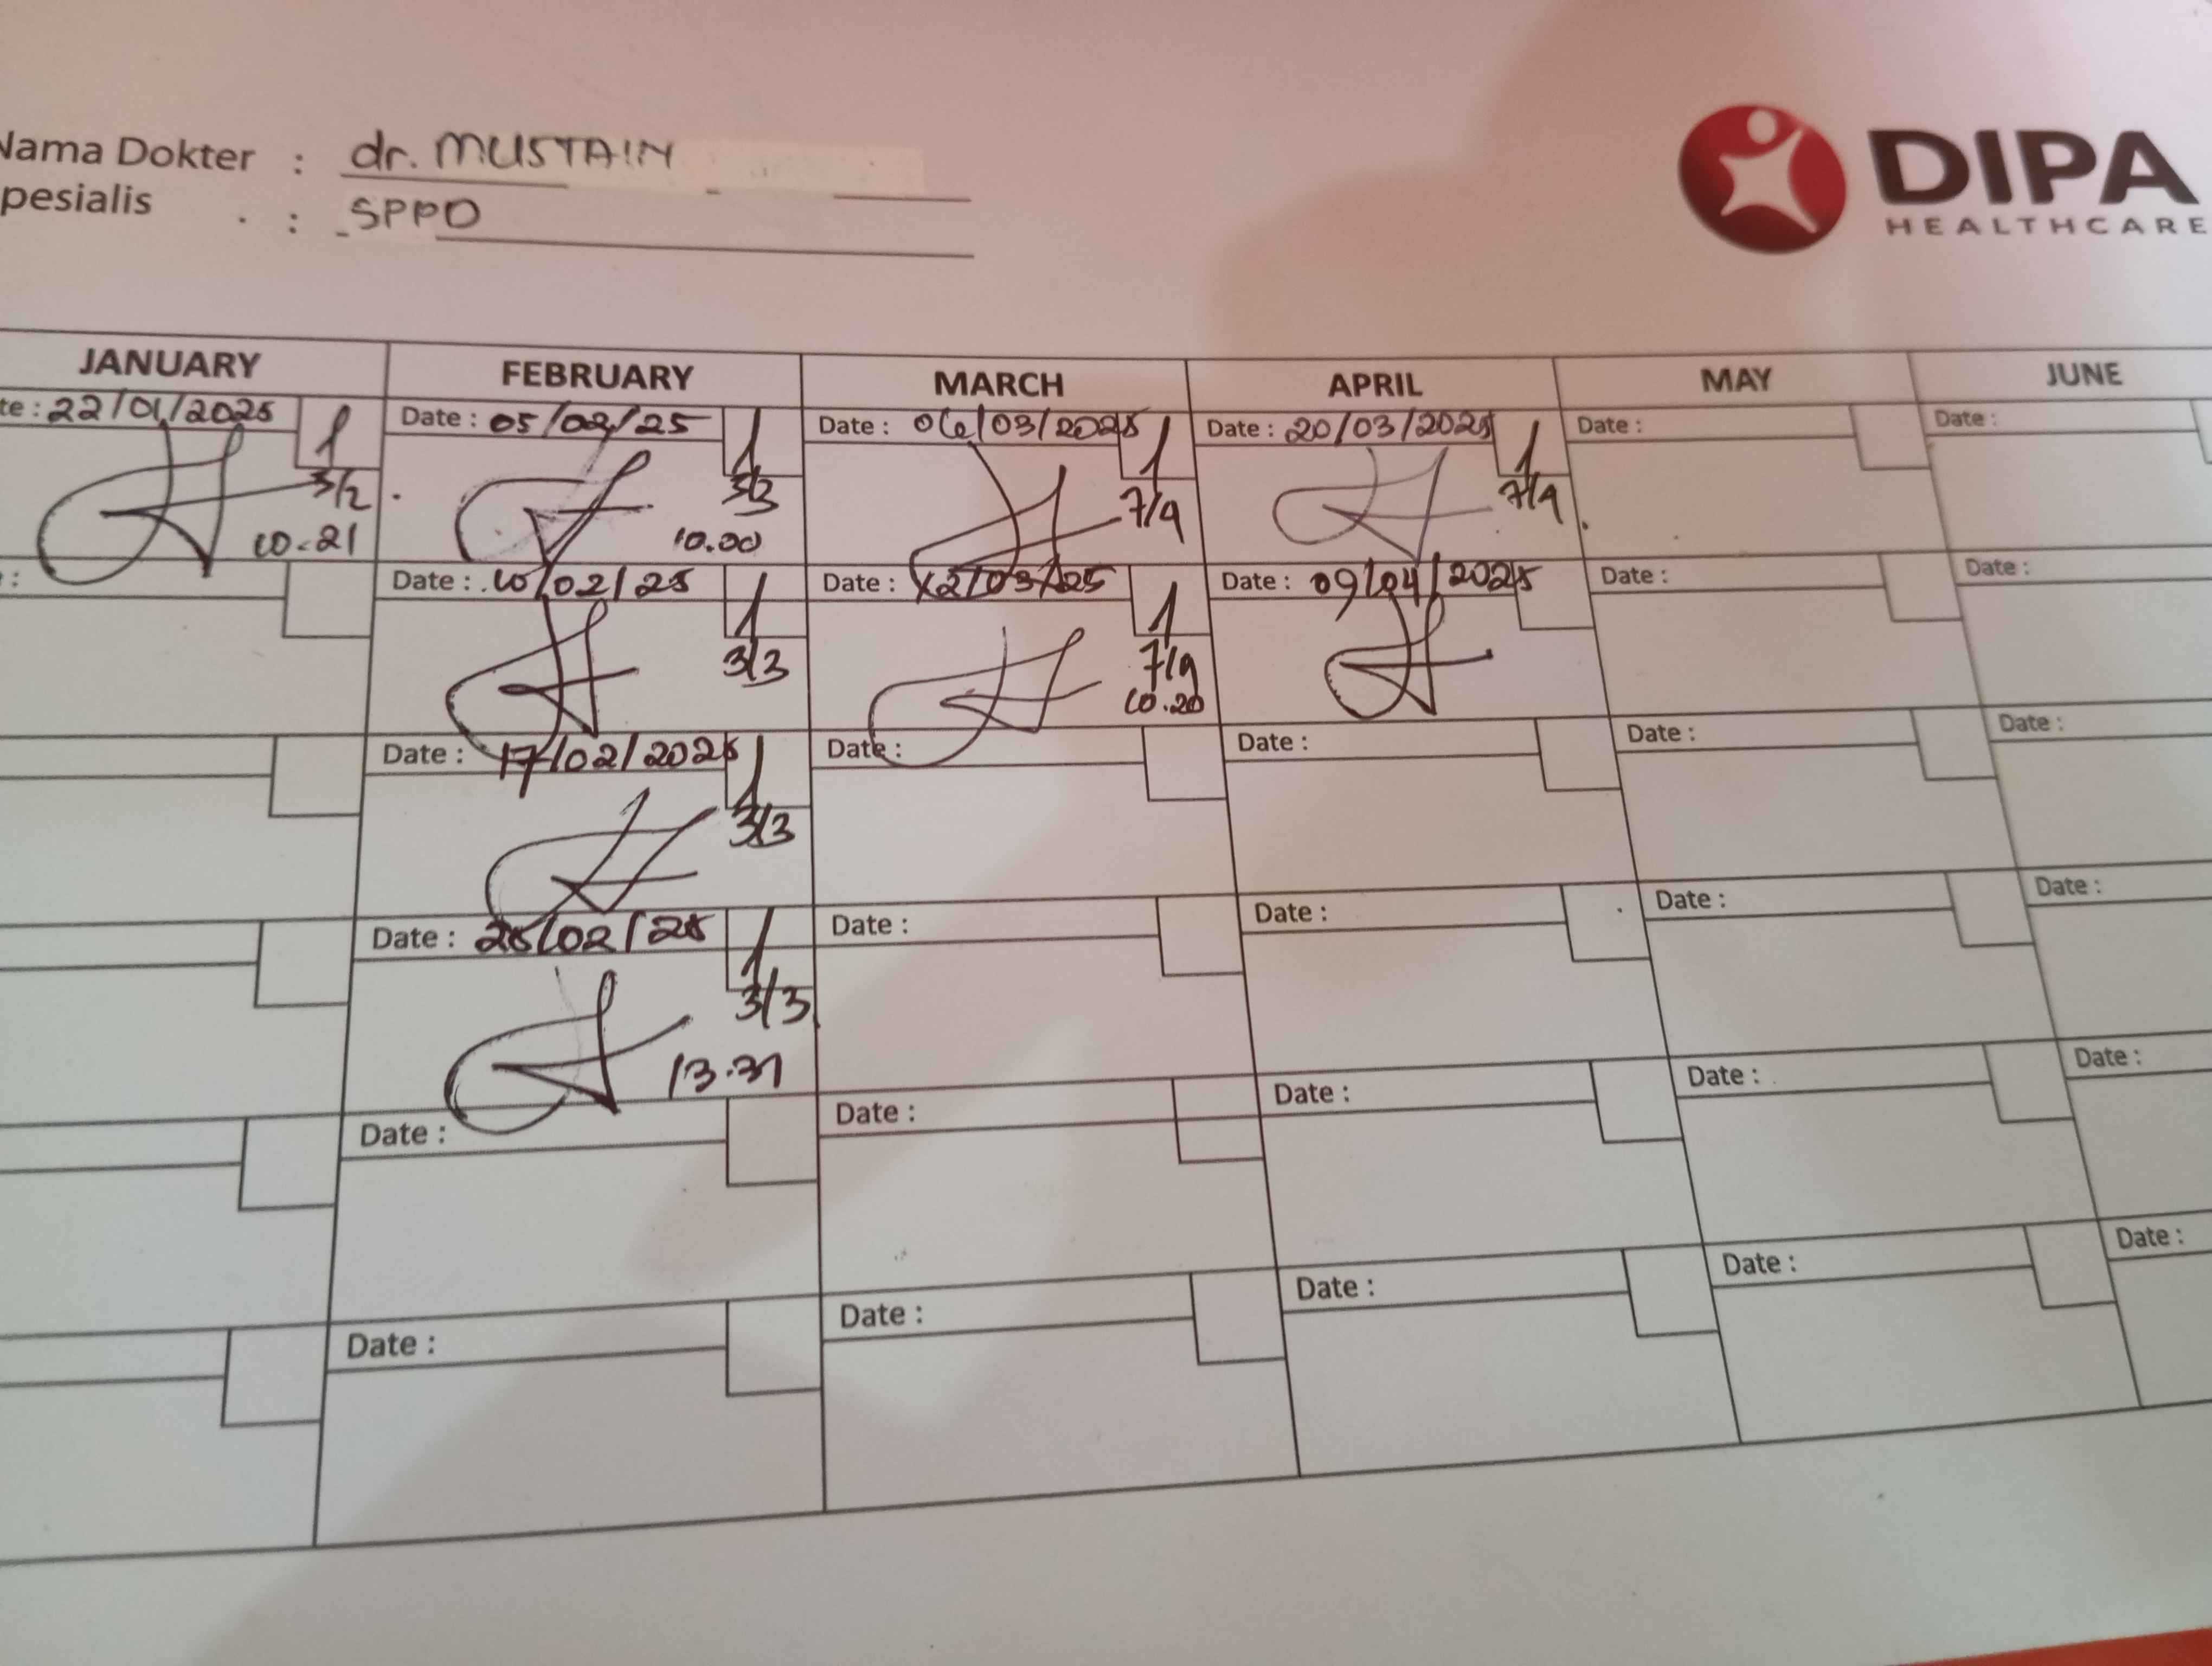 Nama Dokter : dr. MUSTAIN
pesialis : SPPD
DIPA
HEALTHCARE
JANUARY FEBRUARY MARCH APRIL MAY JUNE
te : 22/01/2025 1 Date : 05/02/25 1 Date : 06/03/2025 1 Date : 20/03/2025 1 Date : Date :
3/2 3/3 7/4 7/4
10.21 10.00
: Date : 10/02/25 1 Date : 12/03/25 1 Date : 09/04/2025 Date : Date :
3/3 7/4
10.20
Date : 17/02/2025 1 Date : Date : Date : Date :
3/3
Date : 25/02/25 1 Date : Date : Date : Date :
3/3
13.31
Date : Date : Date : Date : Date :
Date : Date : Date : Date : Date :